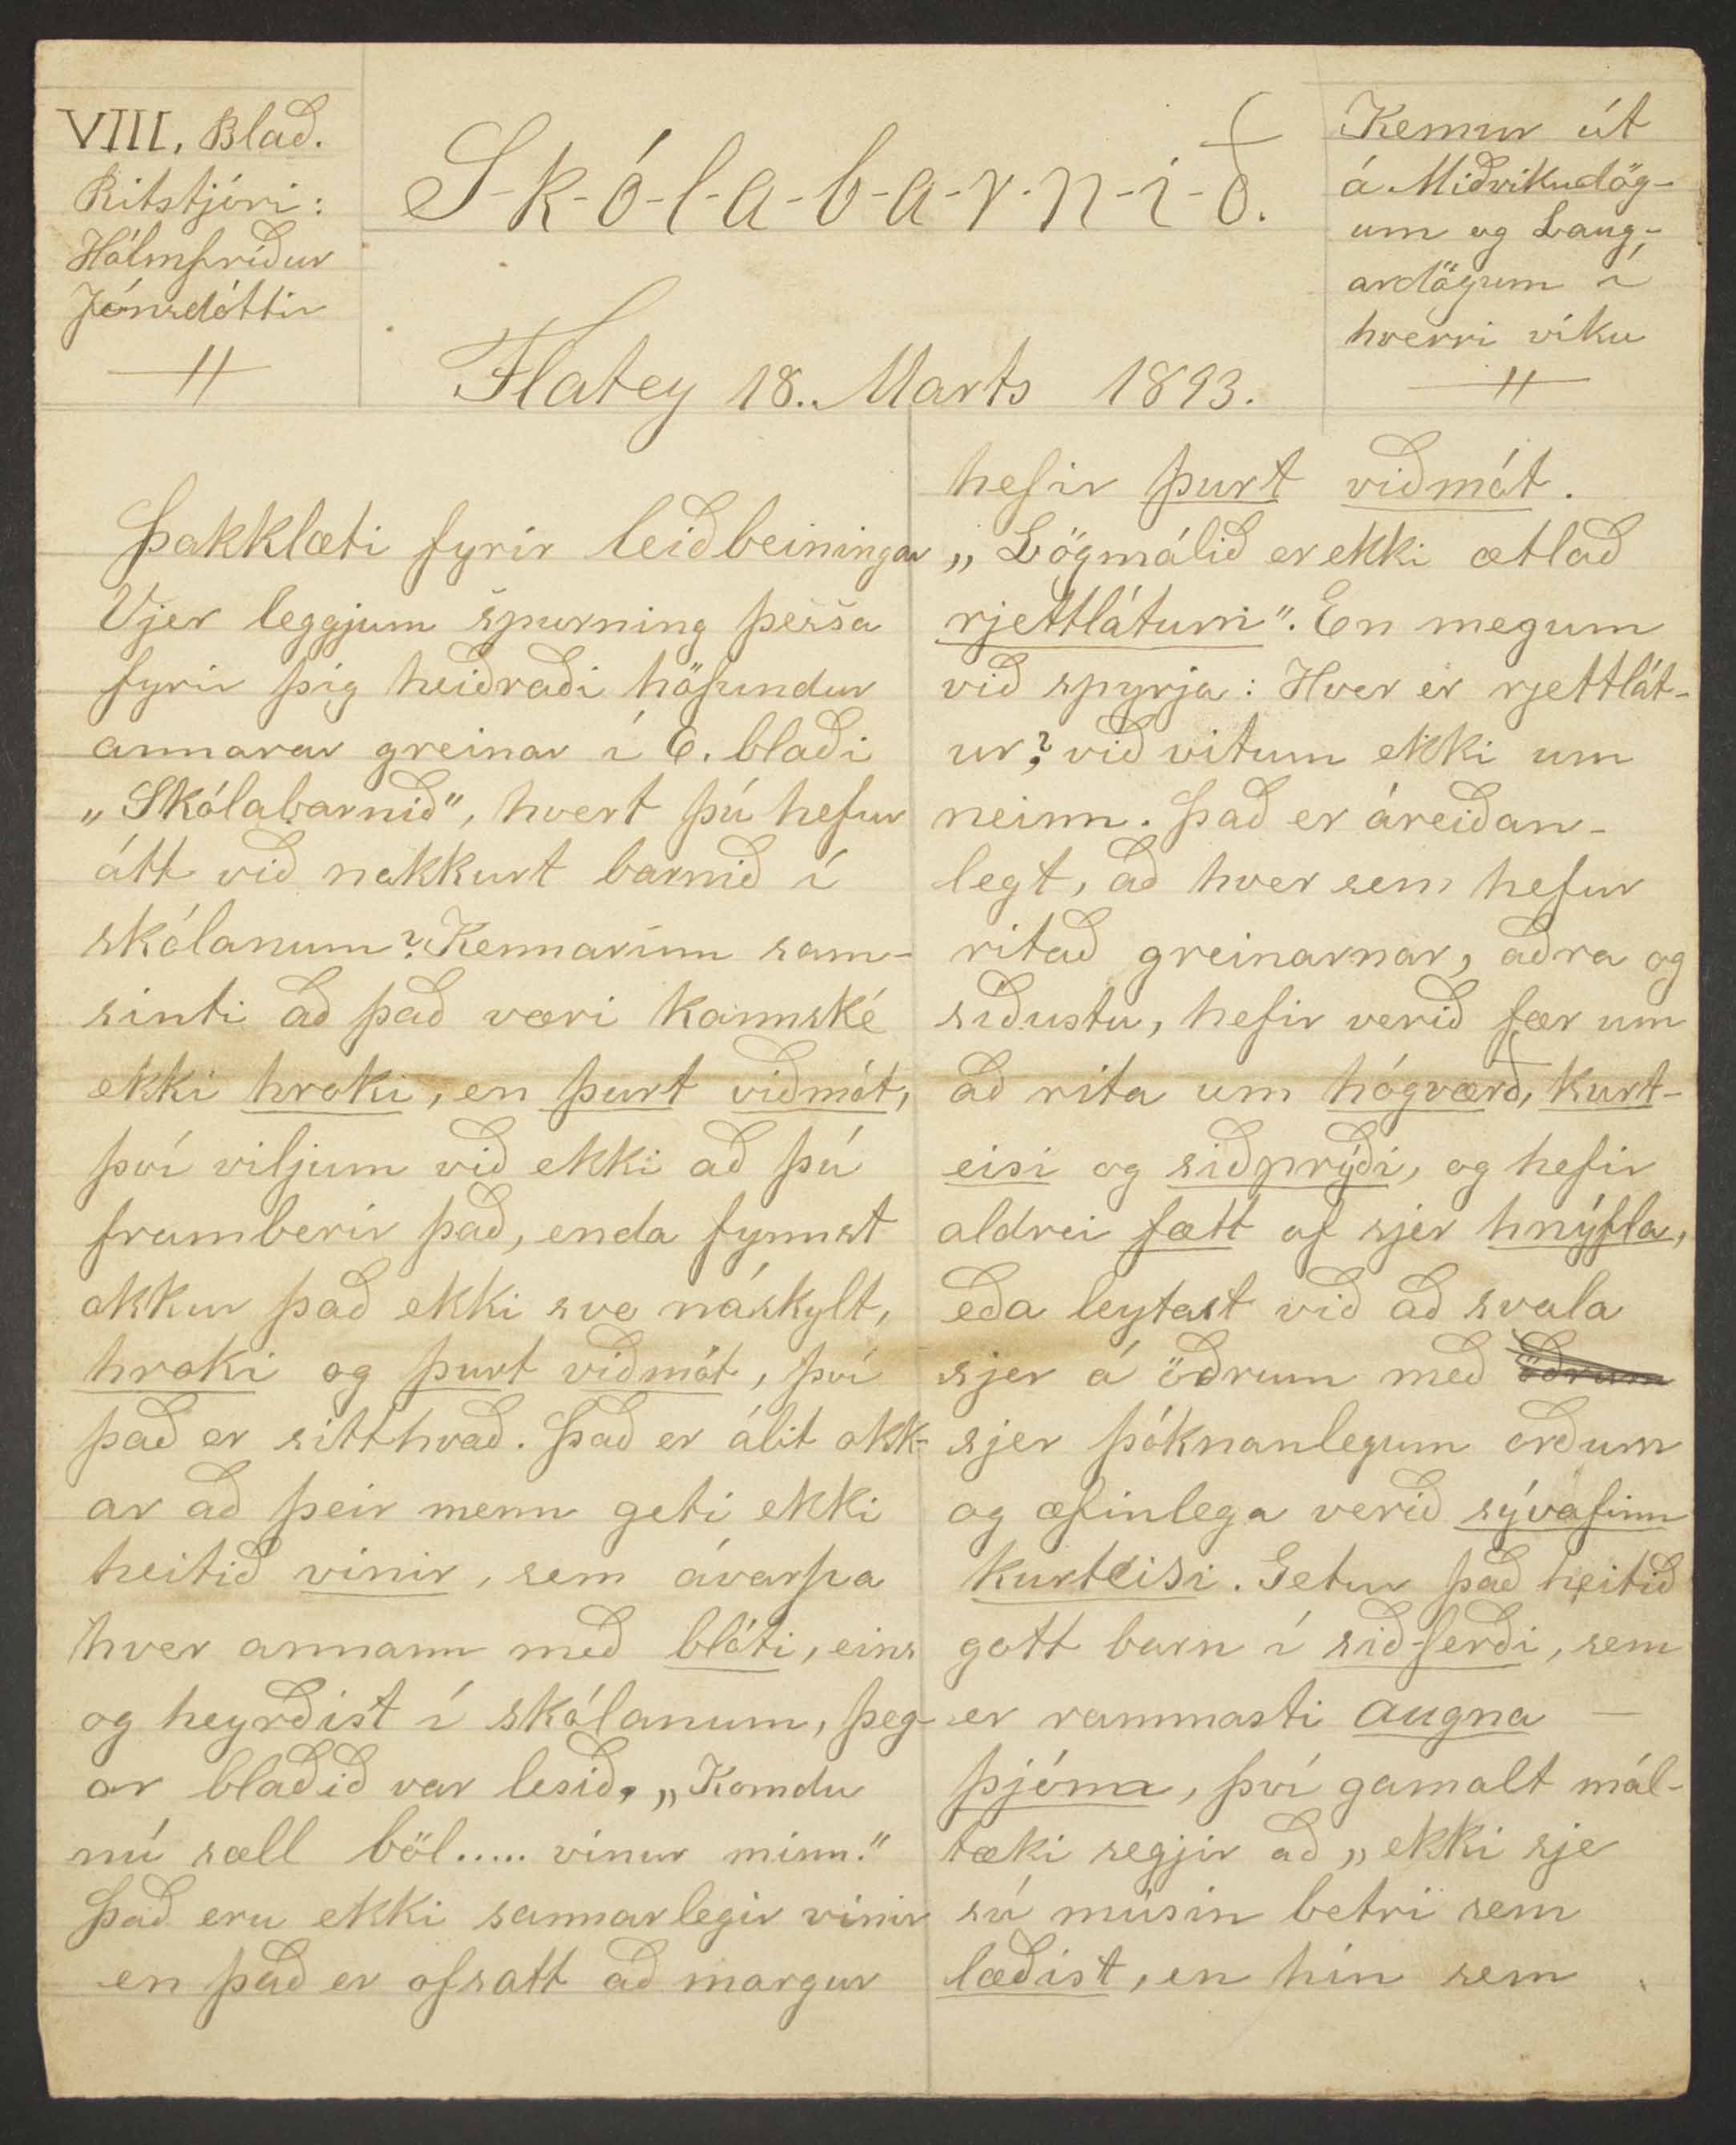 VIII. Blað.
Ritstjóri:
Hólmfríður
Jónsdóttir
S-k-ó-l-a-b-a-r-n-i-ð.
Flatey 18. Marts 1893.
Kemur út
á Miðvikudög-
um og Laug-
ardögum í
hverri viku
Þakklæti fyrir leiðbeiningar
Vjer leggjum spurning þessa
fyrir þig heiðraði höfundur
annarar greinar í 6. blaði
„Skólabarnið", hvert þú hefur
átt við nokkurt barnið í
skólanum? Kennarinn sam-
sinti að það væri kannské
ekki hroki, en þurt viðmót,
því viljum við ekki að þú
framberir það, enda fynnst
okkur það ekki svo náskylt,
hroki og þurt viðmót, því
það er sitthvað. Það er álit okk-
ar að þeir menn geti ekki
heitið vinir, sem ávarpa
hver annann með blóti, eins
og heyrðist í skólanum, þeg-
ar blaðið var lesið, „Komdu
nú sæll böl..... vinur minn."
Það eru ekki sannarlegir vinir
en það er ofsatt að margur
hefir þurt viðmót.
„Lögmálið er ekki ætlað
rjettlátum". En megum
við spyrja: Hver er rjettlát-
ur? við vitum ekki um
neinn. Það er áreiðan-
legt, að hver sem hefur
ritað greinarnar, aðra og
síðustu, hefir verið fær um
að rita um hógværð, kurt-
eisi og siðprýði, og hefir
aldrei fætt af sjer hnýfla,
eða leytast við að svala
sjer á öðrum með öðrum
sjer þóknanlegum orðum
og æfinlega verið sývafinn
kurteisi. Getur það heitið
gott barn í sið-ferði, sem
er rammasti augna-
þjónn, því gamalt mál-
tæki segjir að „ekki sje
sú músin betri sem
læðist, en hin sem